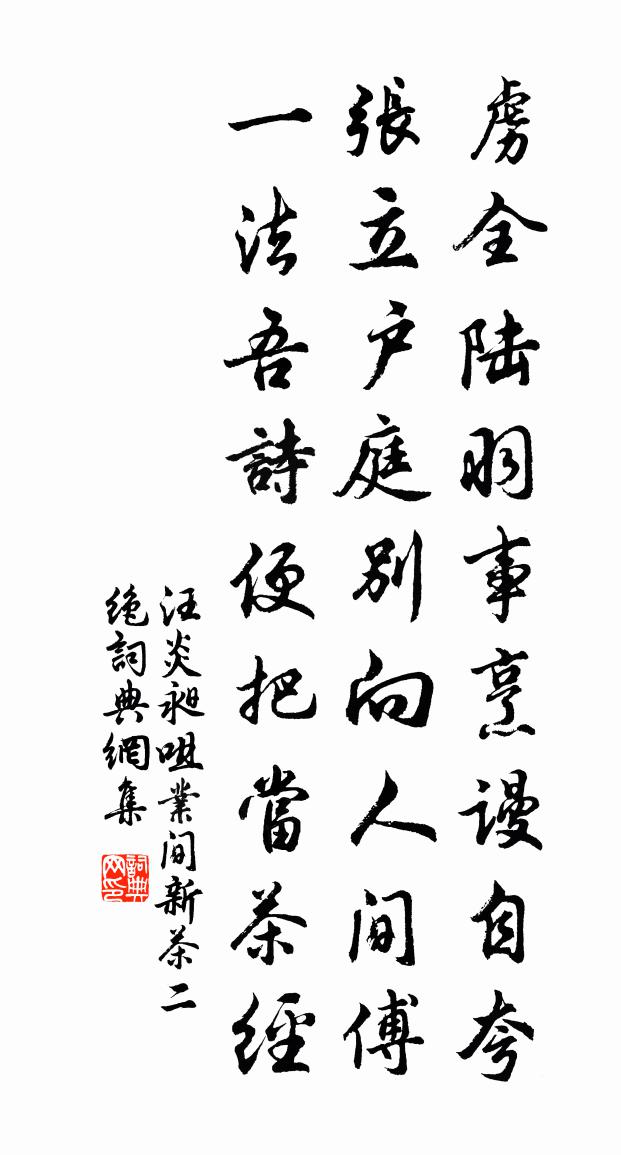 虏全陸羽事烹謾自夸
張立户庭别向人間傅
一法吾詩便把當茶經
汪炎昶咀業間新茶二
絶詞典網集
詞典
网印